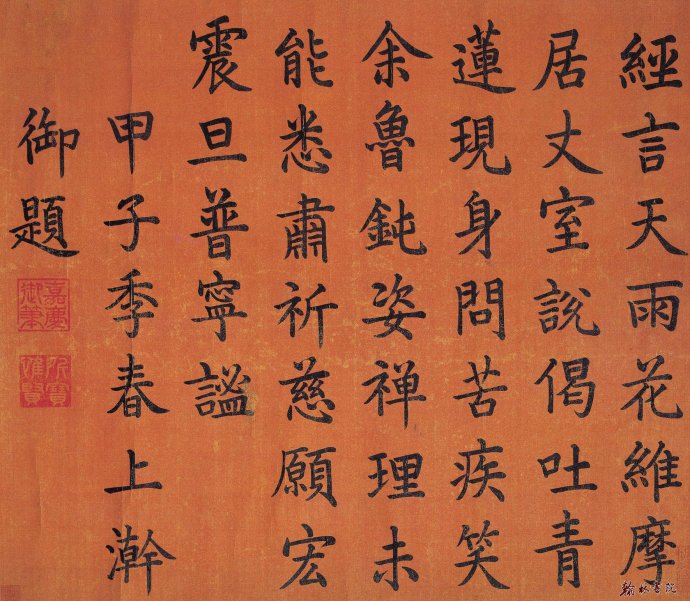 經言天雨花維摩
居丈室說偈吐青
蓮現身問苦疾笑
余魯鈍姿禅理未
能悉肅祈慈願宏
震旦普寧謐
甲子季春上澣
御題
嘉慶御筆
所寶惟賢
翰林書院